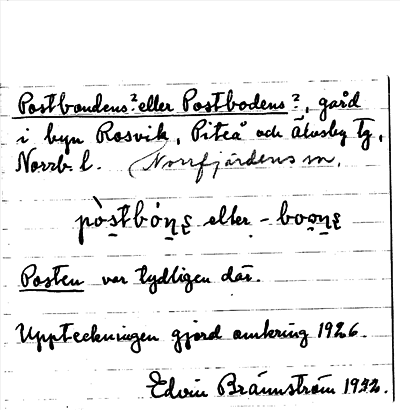 Postbondens? eller Postbodens?, gård
i byn Rosvik, Piteå och Älvsby tg,
Norrb. l. (Norrfjärdens sn.
pòstbónę eller -boǫnę
Posten var tydligen där.
Uppteckningen gjord omkring 1926.
Edvin Brännström 1942.